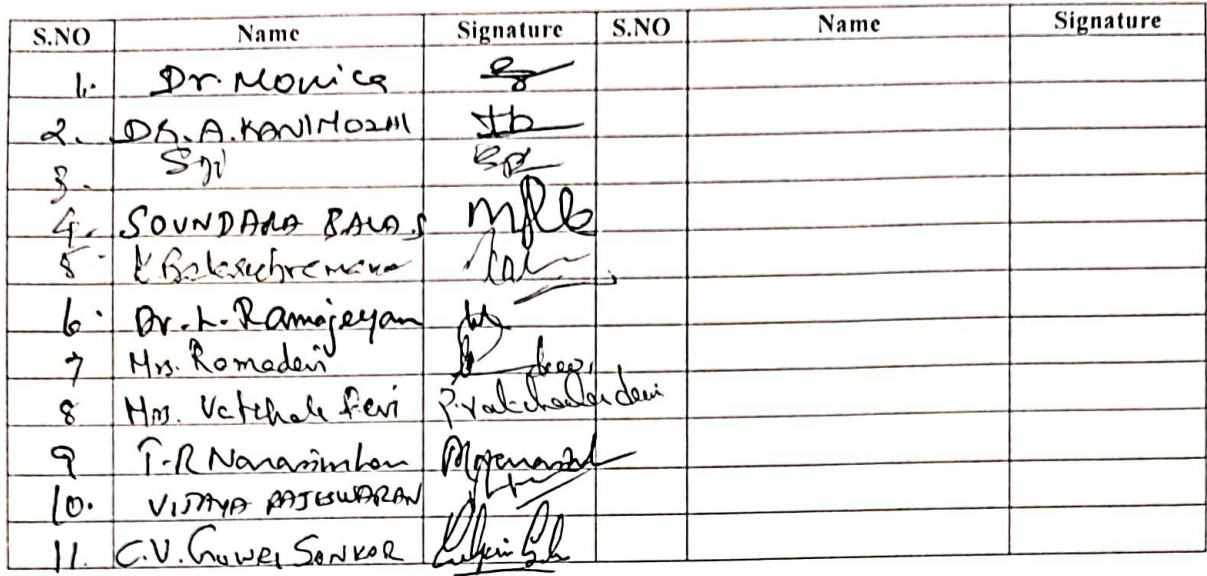 S.NO Name Signature S.NO Name Signature
1. Dr. Monica
2. DR. A. KANIMOZHI
3. Sri
4. SOUNDARA BALA.S
5 K Balasubramana
6. Dr. L. Ramajeyam
7 Mrs. Ramadevi
8 Mrs. Vatchala Devi P. Vatchala devi
9 T.R Narasimhan
10. VIJAYA RAJESWARAN
11. C.V. GOWRI SANKAR